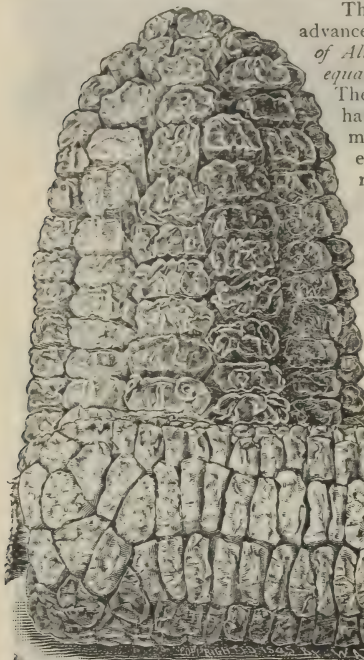 Th
advance
of Al
equa
The
ha
m
e
r
COPYRIGHTED 1895 BY WA